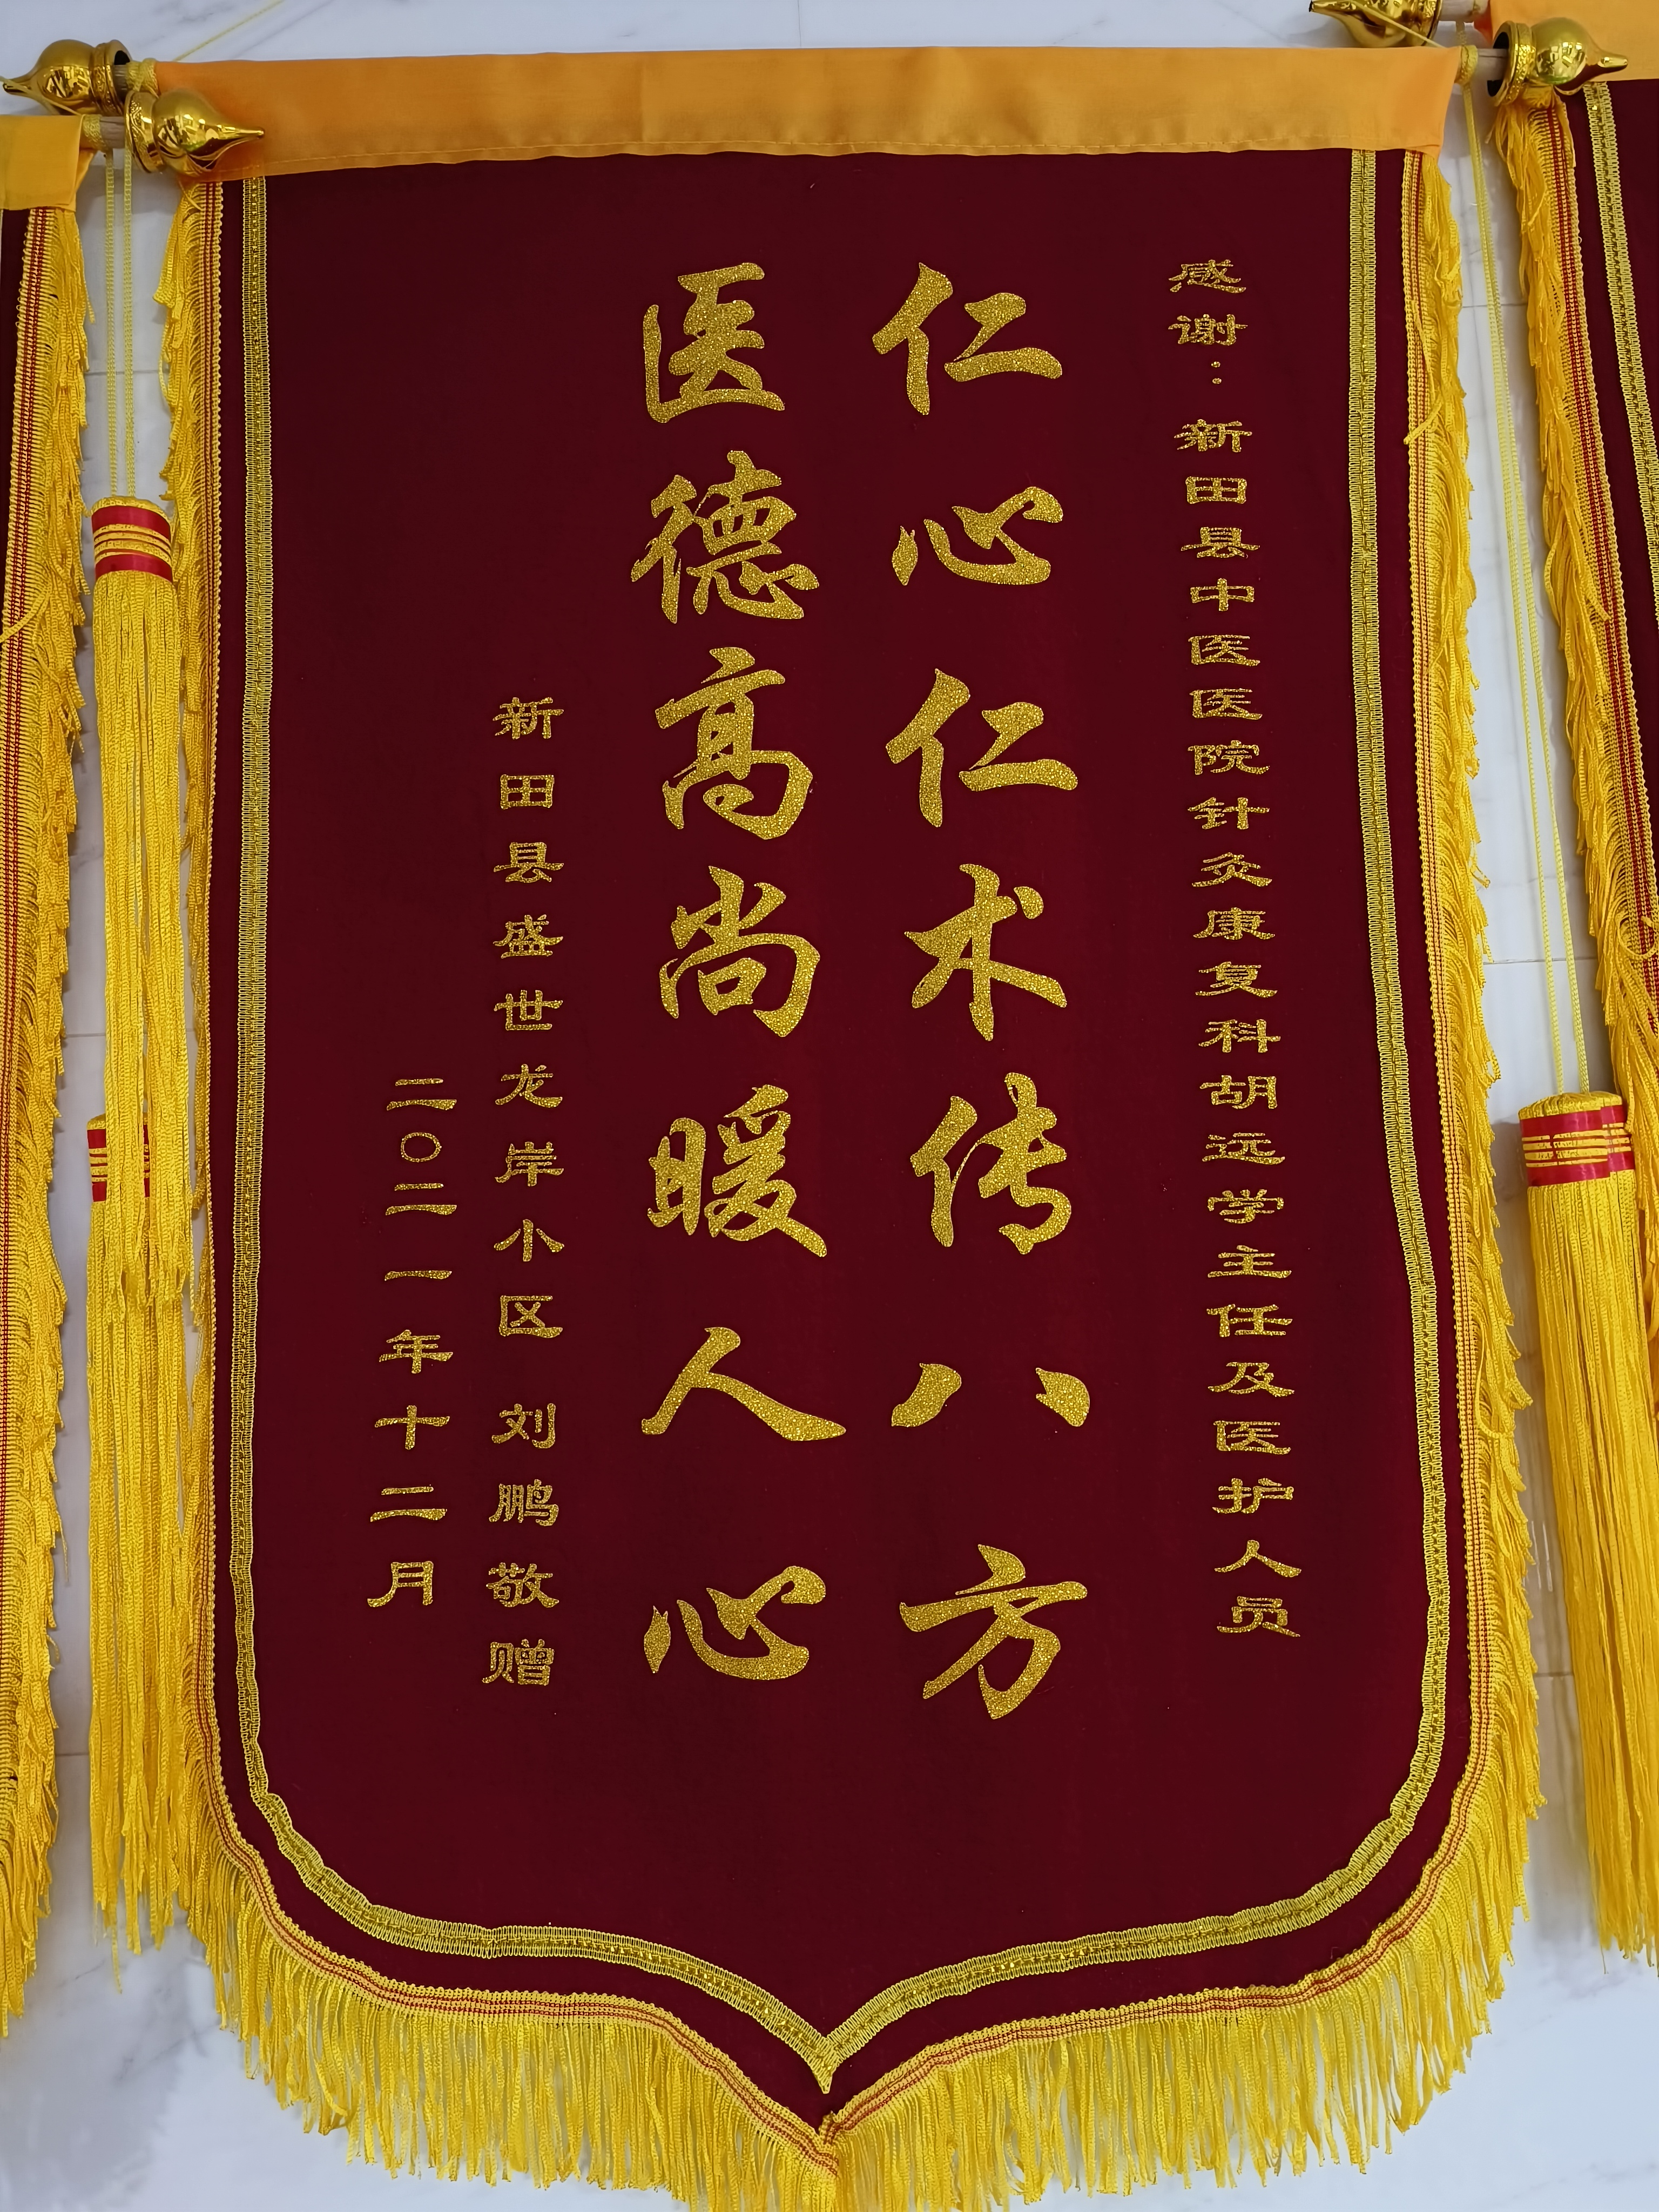 感谢：新田县中医医院针灸康复科胡远学主任及医护人员
仁心仁术传八方
医德高尚暖人心
新田县盛世龙岸小区 刘鹏敬赠
二〇二一年十二月